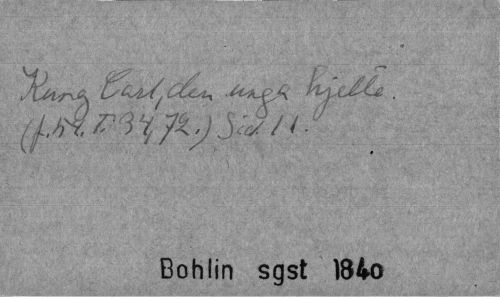 Kung Carl, den unga hjelte.
(f. 52. T. 34, 72.) Sid. 11.
Bohlin sgst 1840